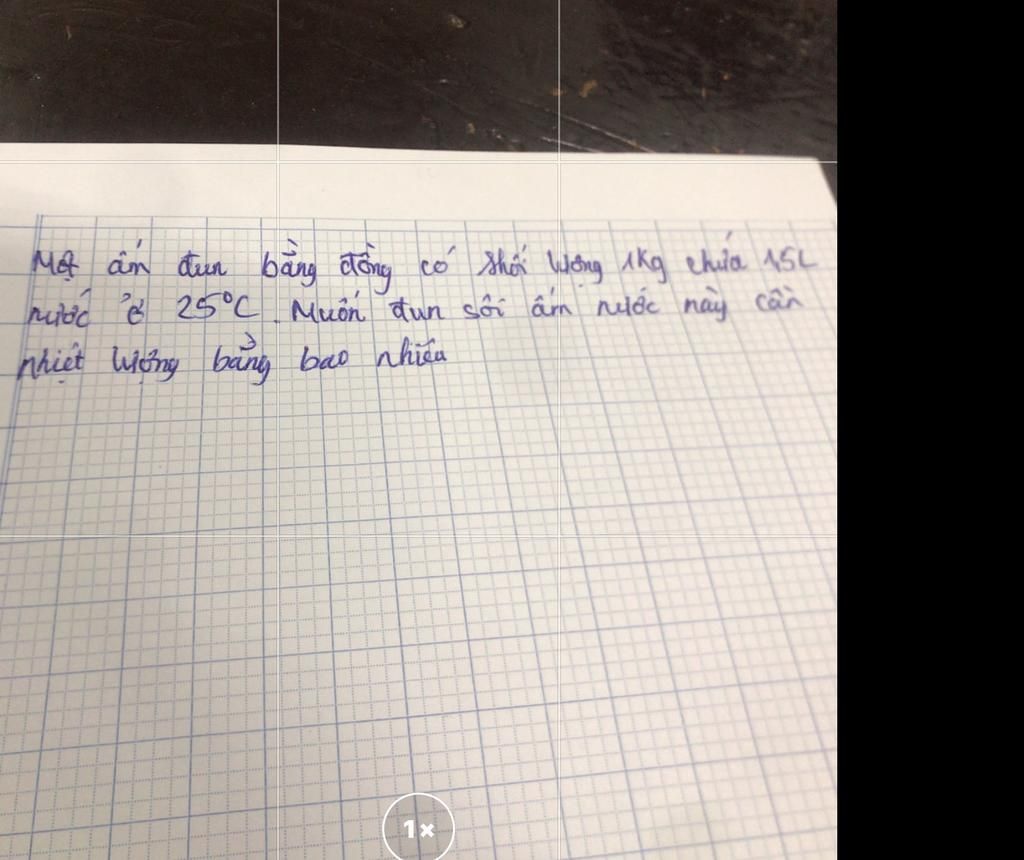 Một ấm đun bằng đồng có khối lượng 1kg chứa 1,5L
nước ở 25°C. Muốn đun sôi ấm nước này cần
nhiệt lượng bằng bao nhiêu
1×